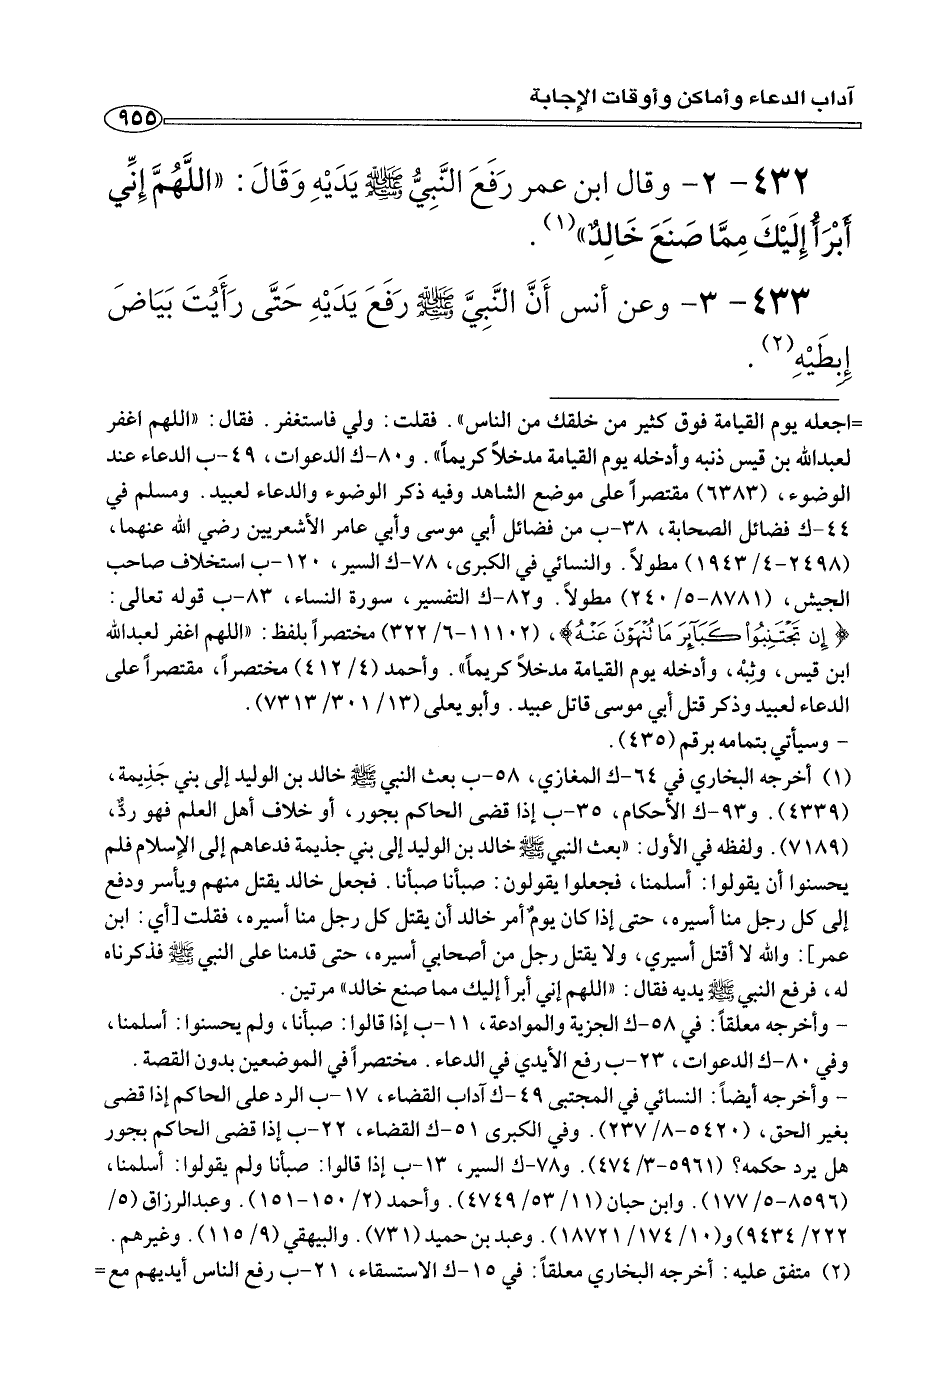 آداب الدعاء وأماكن وأوقات الإجابة
٩٥٥
٤٣٢- ٢- وقال ابن عمر رَفَعَ النَّبِيُّ ﷺ يَدَيْهِ وَقَالَ: «اللَّهُمَّ إِنِّي
أَبْرَأُ إِلَيْكَ مِمَّا صَنَعَ خَالِدٌ»(١).
٤٣٣- ٣- وعن أنس أَنَّ النَّبِيَّ ﷺ رَفَعَ يَدَيْهِ حَتَّى رَأَيْتَ بَيَاضَ
إِبِطَيْهِ(٢).
=اجعله يوم القيامة فوق كثير من خلقك من الناس». فقلت: ولي فاستغفر. فقال: «اللهم اغفر
لعبدالله بن قيس ذنبه وأدخله يوم القيامة مدخلاً كريماً». و٨٠-ك الدعوات، ٤٩-ب الدعاء عند
الوضوء، (٦٣٨٣) مقتصراً على موضع الشاهد وفيه ذكر الوضوء والدعاء لعبيد. ومسلم في
٤٤-ك فضائل الصحابة، ٣٨-ب من فضائل أبي موسى وأبي عامر الأشعريين رضي الله عنهما،
(٢٤٩٨-٤/ ١٩٤٣) مطولاً. والنسائي في الكبرى، ٧٨-ك السير، ١٢٠-ب استخلاف صاحب
الجيش، (٨٧٨١-٥/ ٢٤٠) مطولاً. و٨٢-ك التفسير، سورة النساء، ٨٣-ب قوله تعالى:
﴿إِن تَجْتَنِبُوا۟ كَبَآئِرَ مَا تُنْهَوْنَ عَنْهُ﴾، (١١١٠٢-٦/ ٣٢٢) مختصراً بلفظ: «اللهم اغفر لعبدالله
ابن قيس، وثِبْهُ، وأدخله يوم القيامة مدخلاً كريماً». وأحمد (٤/ ٤١٢) مختصراً، مقتصراً على
الدعاء لعبيد وذكر قتل أبي موسى قاتل عبيد. وأبو يعلى (١٣/ ٣٠١/ ٧٣١٣).
- وسيأتي بتمامه برقم (٤٣٥).
(١) أخرجه البخاري في ٦٤-ك المغازي، ٥٨-ب بعث النبي ﷺ خالد بن الوليد إلى بني جَذِيمة،
(٤٣٣٩). و٩٣-ك الأحكام، ٣٥-ب إذا قضى الحاكم بجور، أو خلاف أهل العلم فهو ردٌّ،
(٧١٨٩). ولفظه في الأول: «بعث النبي ﷺ خالد بن الوليد إلى بني جذيمة فدعاهم إلى الإسلام فلم
يحسنوا أن يقولوا: أسلمنا، فجعلوا يقولون: صبأنا صبأنا. فجعل خالد يقتل منهم ويأسر ودفع
إلى كل رجل منا أسيره، حتى إذا كان يومٌ أمر خالد أن يقتل كل رجل منا أسيره، فقلت [أي: ابن
عمر]: والله لا أقتل أسيري، ولا يقتل رجل من أصحابي أسيره، حتى قدمنا على النبي ﷺ فذكرناه
له، فرفع النبي ﷺ يديه فقال: «اللهم إني أبرأ إليك مما صنع خالد» مرتين.
- وأخرجه معلقاً: في ٥٨-ك الجزية والموادعة، ١١-ب إذا قالوا: صبأنا، ولم يحسنوا: أسلمنا،
وفي ٨٠-ك الدعوات، ٢٣-ب رفع الأيدي في الدعاء. مختصراً في الموضعين بدون القصة.
- وأخرجه أيضاً: النسائي في المجتبى ٤٩-ك آداب القضاء، ١٧-ب الرد على الحاكم إذا قضى
بغير الحق، (٥٤٢٠-٨/ ٢٣٧). وفي الكبرى ٥١-ك القضاء، ٢٢-ب إذا قضى الحاكم بجور
هل يرد حكمه؟ (٥٩٦١-٣/ ٤٧٤). و٧٨-ك السير، ١٣-ب إذا قالوا: صبأنا ولم يقولوا: أسلمنا،
(٨٥٩٦-٥/ ١٧٧). وابن حبان (١١/ ٥٣/ ٤٧٤٩). وأحمد (٢/ ١٥٠-١٥١). وعبدالرزاق (٥/
٢٢٢/ ٩٤٣٤) و(١٠/ ١٧٤/ ١٨٧٢١). وعبد بن حميد (٧٣١). والبيهقي (٩/ ١١٥). وغيرهم.
(٢) متفق عليه: أخرجه البخاري معلقاً: في ١٥-ك الاستسقاء، ٢١-ب رفع الناس أيديهم مع=